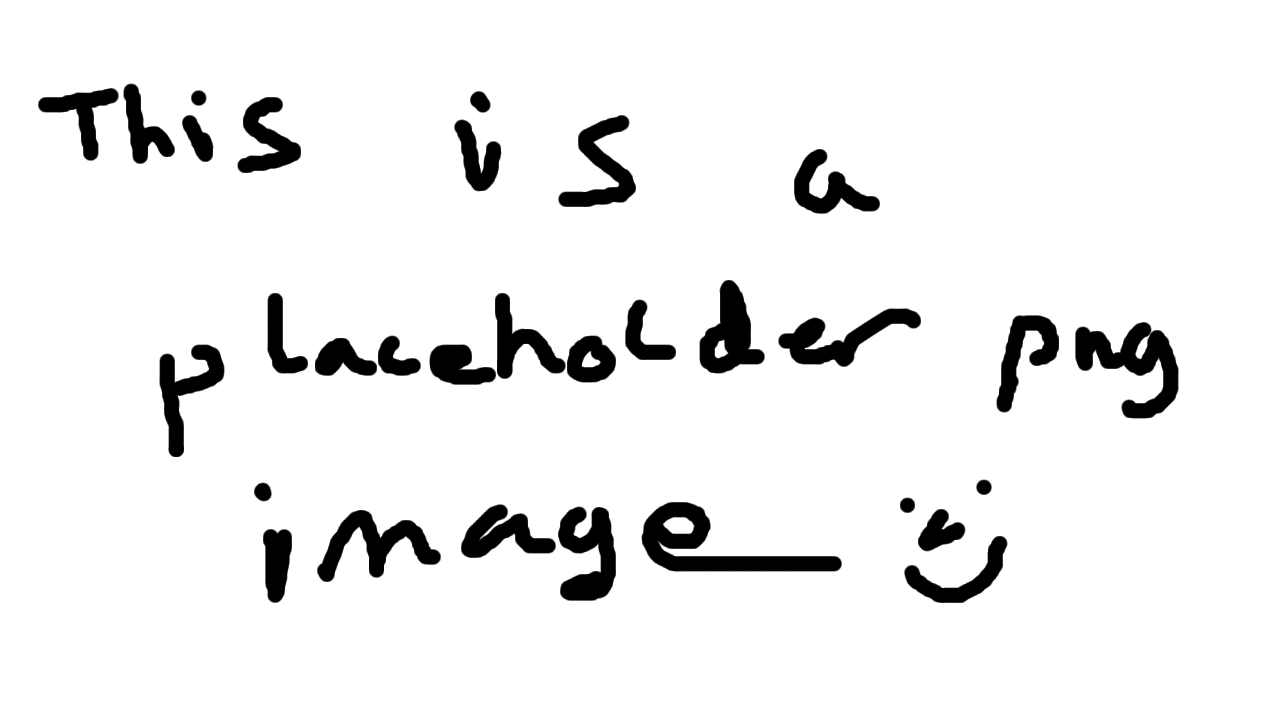 This is a
placeholder png
image